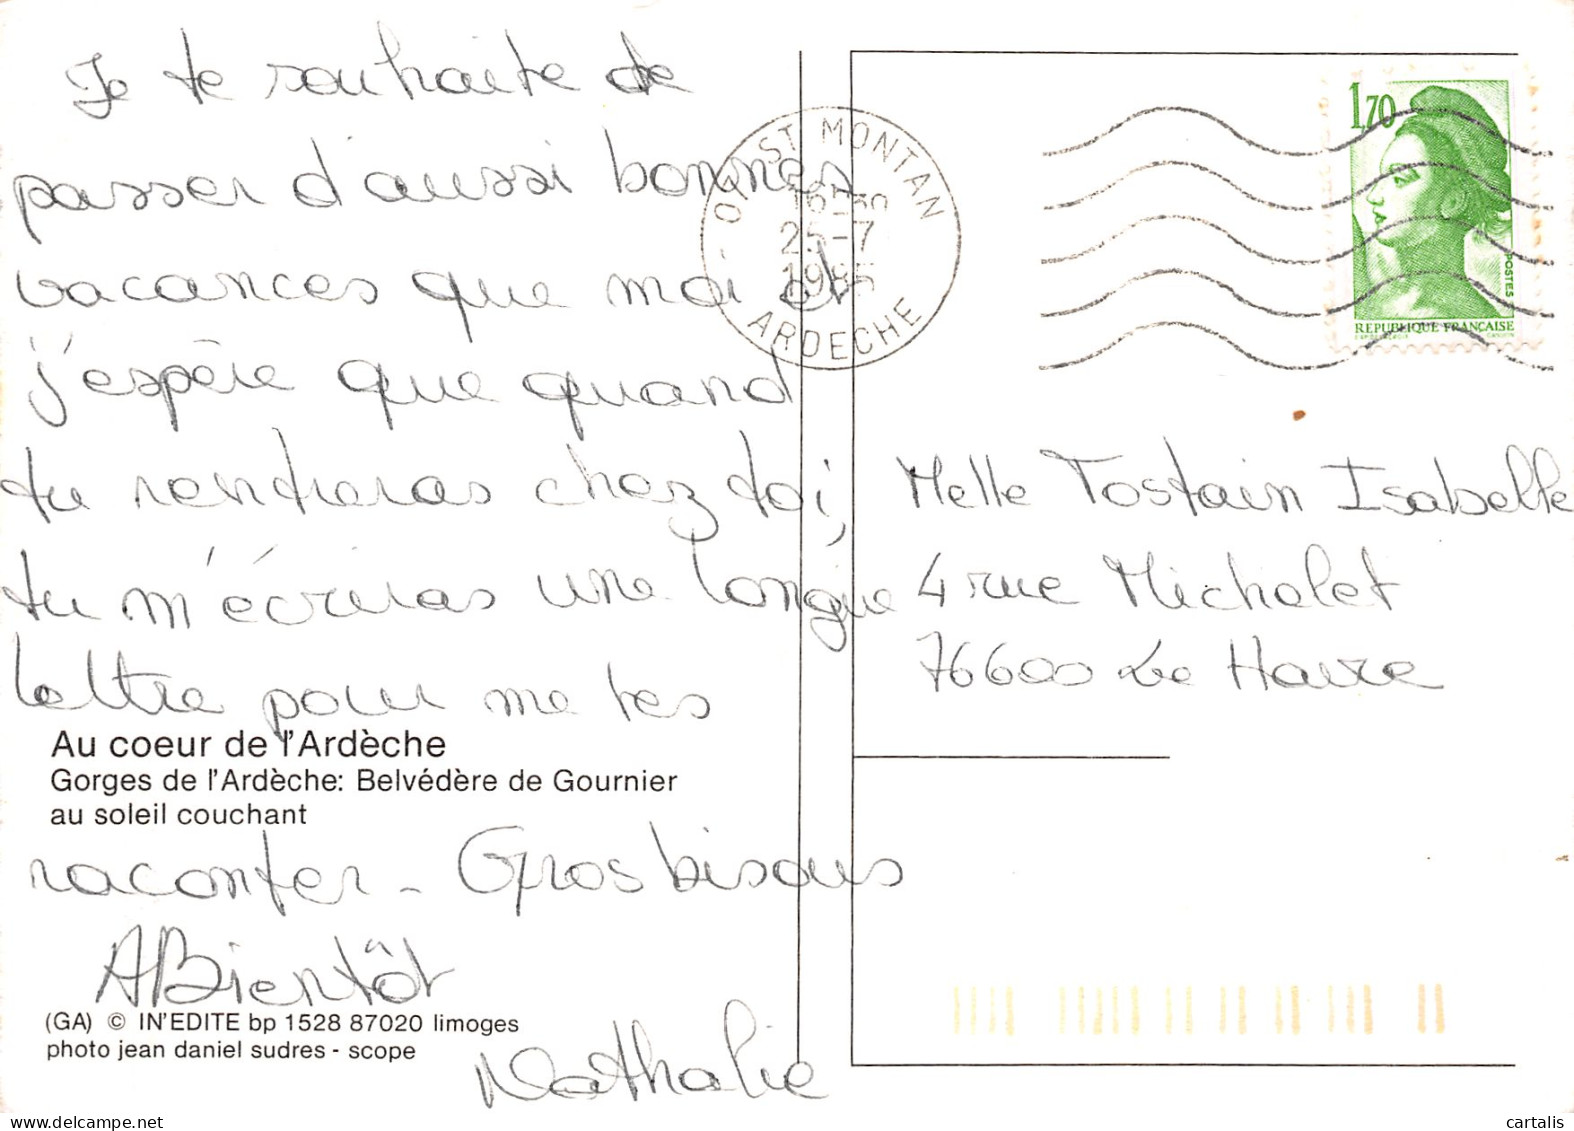 Je te souhaite de
passer d'aussi bonnes
vacances que moi et
j'espère que quand
tu rentreras chez toi,
tu m'écriras une longue
lettre pour me les
Au coeur de l'Ardèche
Gorges de l'Ardèche: Belvédère de Gournier
au soleil couchant
raconter - Gros bisous
A Bientôt
(GA) © IN'EDITE bp 1528 87020 limoges
photo jean daniel sudres - scope
Nathalie
ST MONTAN
25-7
ARDECHE
1,70
POSTES
REPUBLIQUE FRANÇAISE
Melle Tostain Isabelle
4 rue Michelet
76600 Le Havre
cartalis